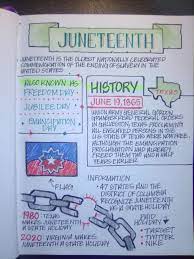 JUNETEENTH
JUNETEENTH IS THE OLDEST NATIONALLY CELEBRATED
COMMEMORATION OF THE ENDING OF SLAVERY IN THE
UNITED STATES
ALSO KNOWN AS
FREEDOM DAY
JUBILEE DAY
EMANCIPATION
DAY
HISTORY
TEXAS
JUNE 19, 1865
UNION ARMY GENERAL GORDON
GRANGER READ FEDERAL ORDERS
IN GALVESTON, TEXAS PROCLAIMING
ALL ENSLAVED PERSONS IN THE
U.S. STATE OF TEXAS WERE NOW FREE.
ALTHOUGH THE EMANCIPATION
PROCLAMATION HAD ALREADY
FREED THEM TWO AND A HALF
YEARS EARLIER
FLAG
INFORMATION
47 STATES AND THE
DISTRICT OF COLUMBIA
RECOGNIZE JUNETEENTH
AS A STATE HOLIDAY
1980 TEXAS
MAKES JUNETEENTH
A STATE HOLIDAY
2020 VIRGINIA MAKES
JUNETEENTH A STATE HOLIDAY
PAID
HOLIDAY
TARGET
TWITTER
NIKE